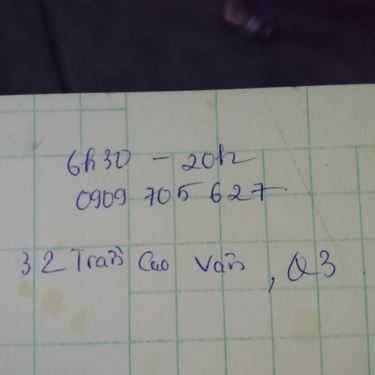 6h30 - 20h
0909 705 627
32 Trần Cao Vân, Q3